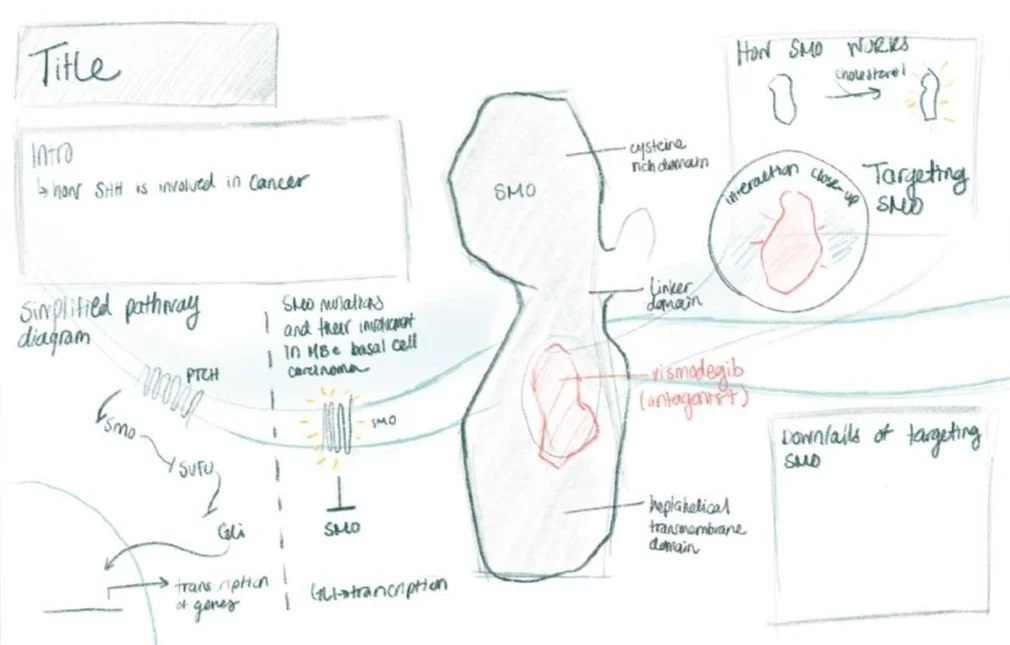 Title
Intro
↳ how SHH is involved in cancer
Simplified pathway
diagram
PTCH
Smo
SUFU
Gli
transcription
of genes
SMO mutations
and their
in MB & basal cell
carcinoma
SMO
SMO
Gli→trancription
SMO
cysteine
rich domain
linker
domain
vismodegib
(antagonist)
heptahelical
transmembrane
domain
HOW SMO WORKS
cholesterol
interaction close-up
Targeting
SMO
Downfalls of targeting
SMO